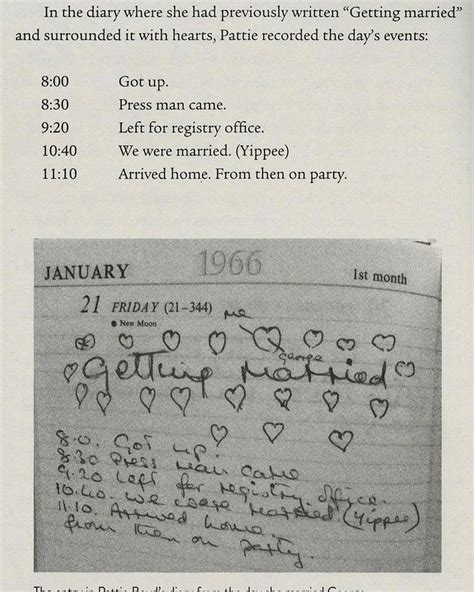 In the diary where she had previously written “Getting married”
and surrounded it with hearts, Pattie recorded the day’s events:
8:00 Got up.
8:30 Press man came.
9:20 Left for registry office.
10:40 We were married. (Yippee)
11:10 Arrived home. From then on party.
JANUARY 1966 1st month
21 FRIDAY (21-344) me
New Moon
george
Getting married
8.0. Got up.
8.30 Press man came
9.20 left for registry office.
10.40. we were married (Yippee)
11.10. Arrived home.
from then on party.
The entry in Pattie Boyd’s diary from the day she married George